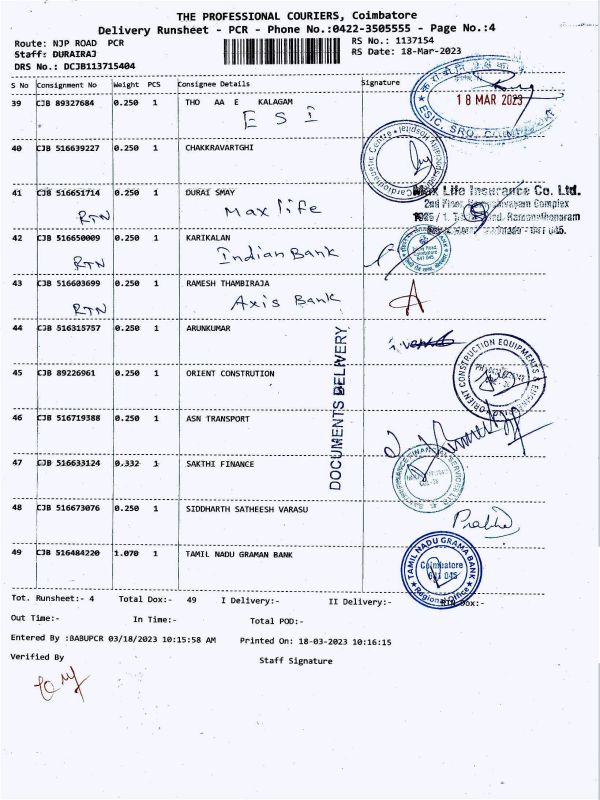 THE PROFESSIONAL COURIERS, Coimbatore
Delivery Runsheet - PCR - Phone No.:0422-3505555 - Page No.:4
Route: NJP ROAD PCR
RS No.: 1137154
Staff: DURAIRAJ
RS Date: 18-Mar-2023
DRS No.: DCJB113715404
S No Consignment No Weight PCS Consignee Details Signature
39 CJB 89327684 0.250 1 THO AA E KALAGAM
E S i
18 MAR 2023
ESIC, SRO, COIMBATORE
40 CJB 516639227 0.250 1 CHAKKRAVARTGHI
41 CJB 516651714 0.250 1 DURAI SMAY
RTN Max life
Max Life Insurance Co. Ltd.
2nd Floor, Complex
Ramanathapuram
641 045.
42 CJB 516650009 0.250 1 KARIKALAN
RTN Indian Bank
43 CJB 516603699 0.250 1 RAMESH THAMBIRAJA
RTN Axis Bank
44 CJB 516315757 0.250 1 ARUNKUMAR
DOCUMENTS DELIVERY
45 CJB 89226961 0.250 1 ORIENT CONSTRUTION
ORIENT CONSTRUCTION EQUIPMENTS &
46 CJB 516719388 0.250 1 ASN TRANSPORT
47 CJB 516633124 0.332 1 SAKTHI FINANCE
48 CJB 516673076 0.250 1 SIDDHARTH SATHEESH VARASU
Prabhu
49 CJB 516484220 1.070 1 TAMIL NADU GRAMAN BANK
TAMIL NADU GRAMA BANK
Coimbatore
641 045
Regional Office
Tot. Runsheet:- 4 Total Dox:- 49 I Delivery:- II Delivery:- RTN Dox:-
Out Time:- In Time:- Total POD:-
Entered By :BABUPCR 03/18/2023 10:15:58 AM Printed On: 18-03-2023 10:16:15
Verified By Staff Signature